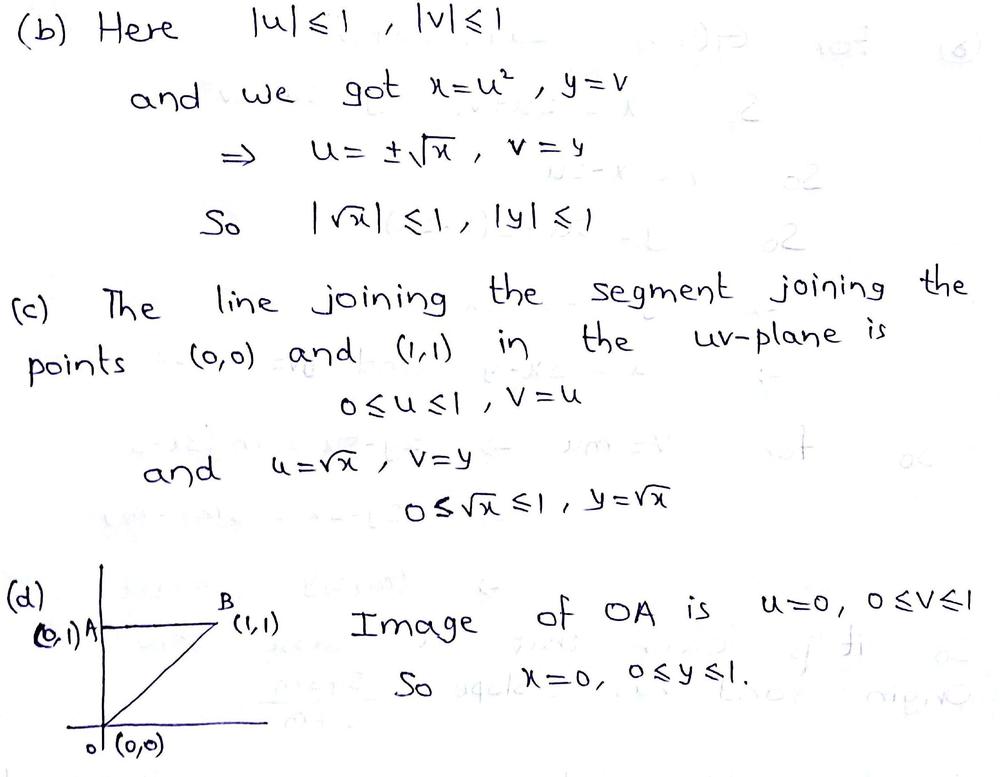 (b) Here |u| ≤ 1 , |v| ≤ 1
and we got x=u² , y=v
⇒ u= ±√x , v = y
So |√x| ≤ 1 , |y| ≤ 1
(c) The line joining the segment joining the
points (0,0) and (1,1) in the uv-plane is
0 ≤ u ≤ 1 , v = u
and u=√x , v=y
0 ≤ √x ≤ 1 , y=√x
(d)
B
(0,1) A (1,1) Image of OA is u=0, 0 ≤ v ≤ 1
So x=0, 0 ≤ y ≤ 1.
0 (0,0)